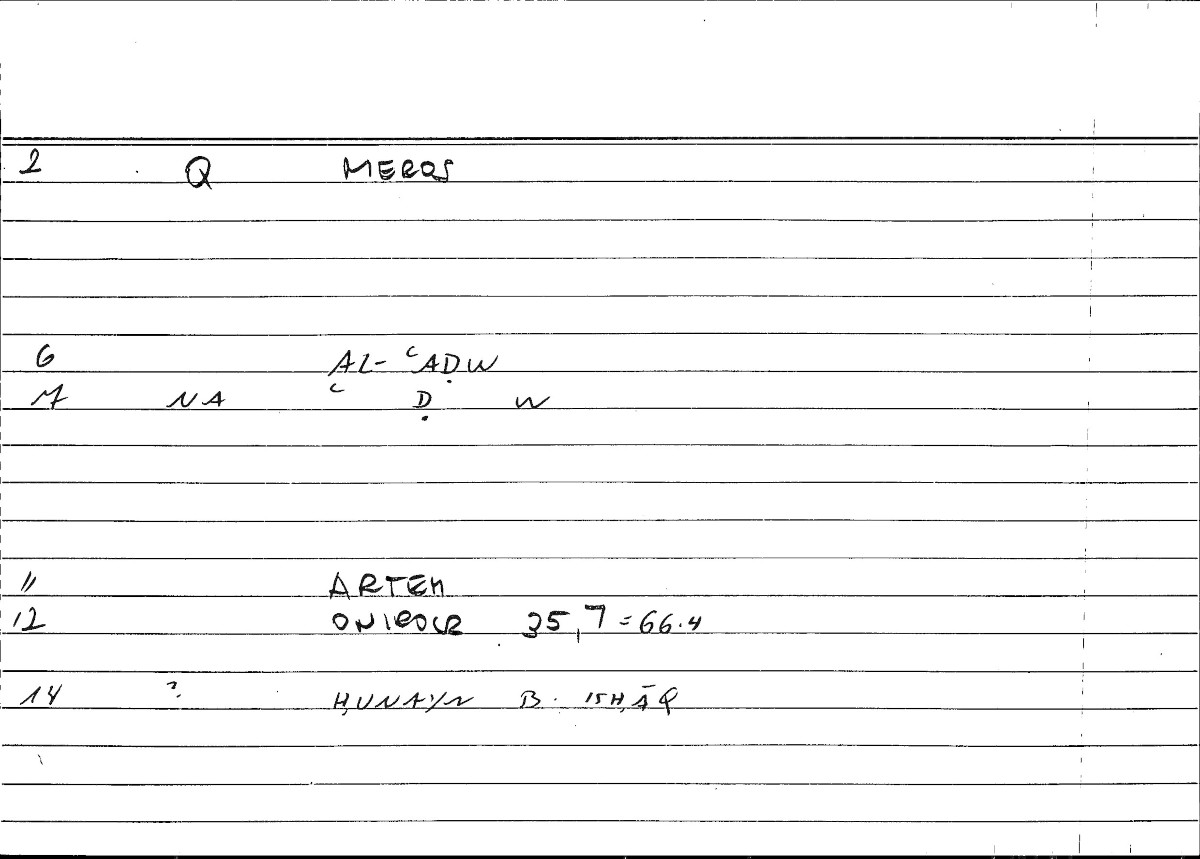 2 Q MEROS
6 AL- ʿAḌW
7 NA ʿ Ḍ W
11 ARTEM
12 ONIROCR 35,7 = 66.4
14 ? ḤUNAYN B. ISḤĀQ